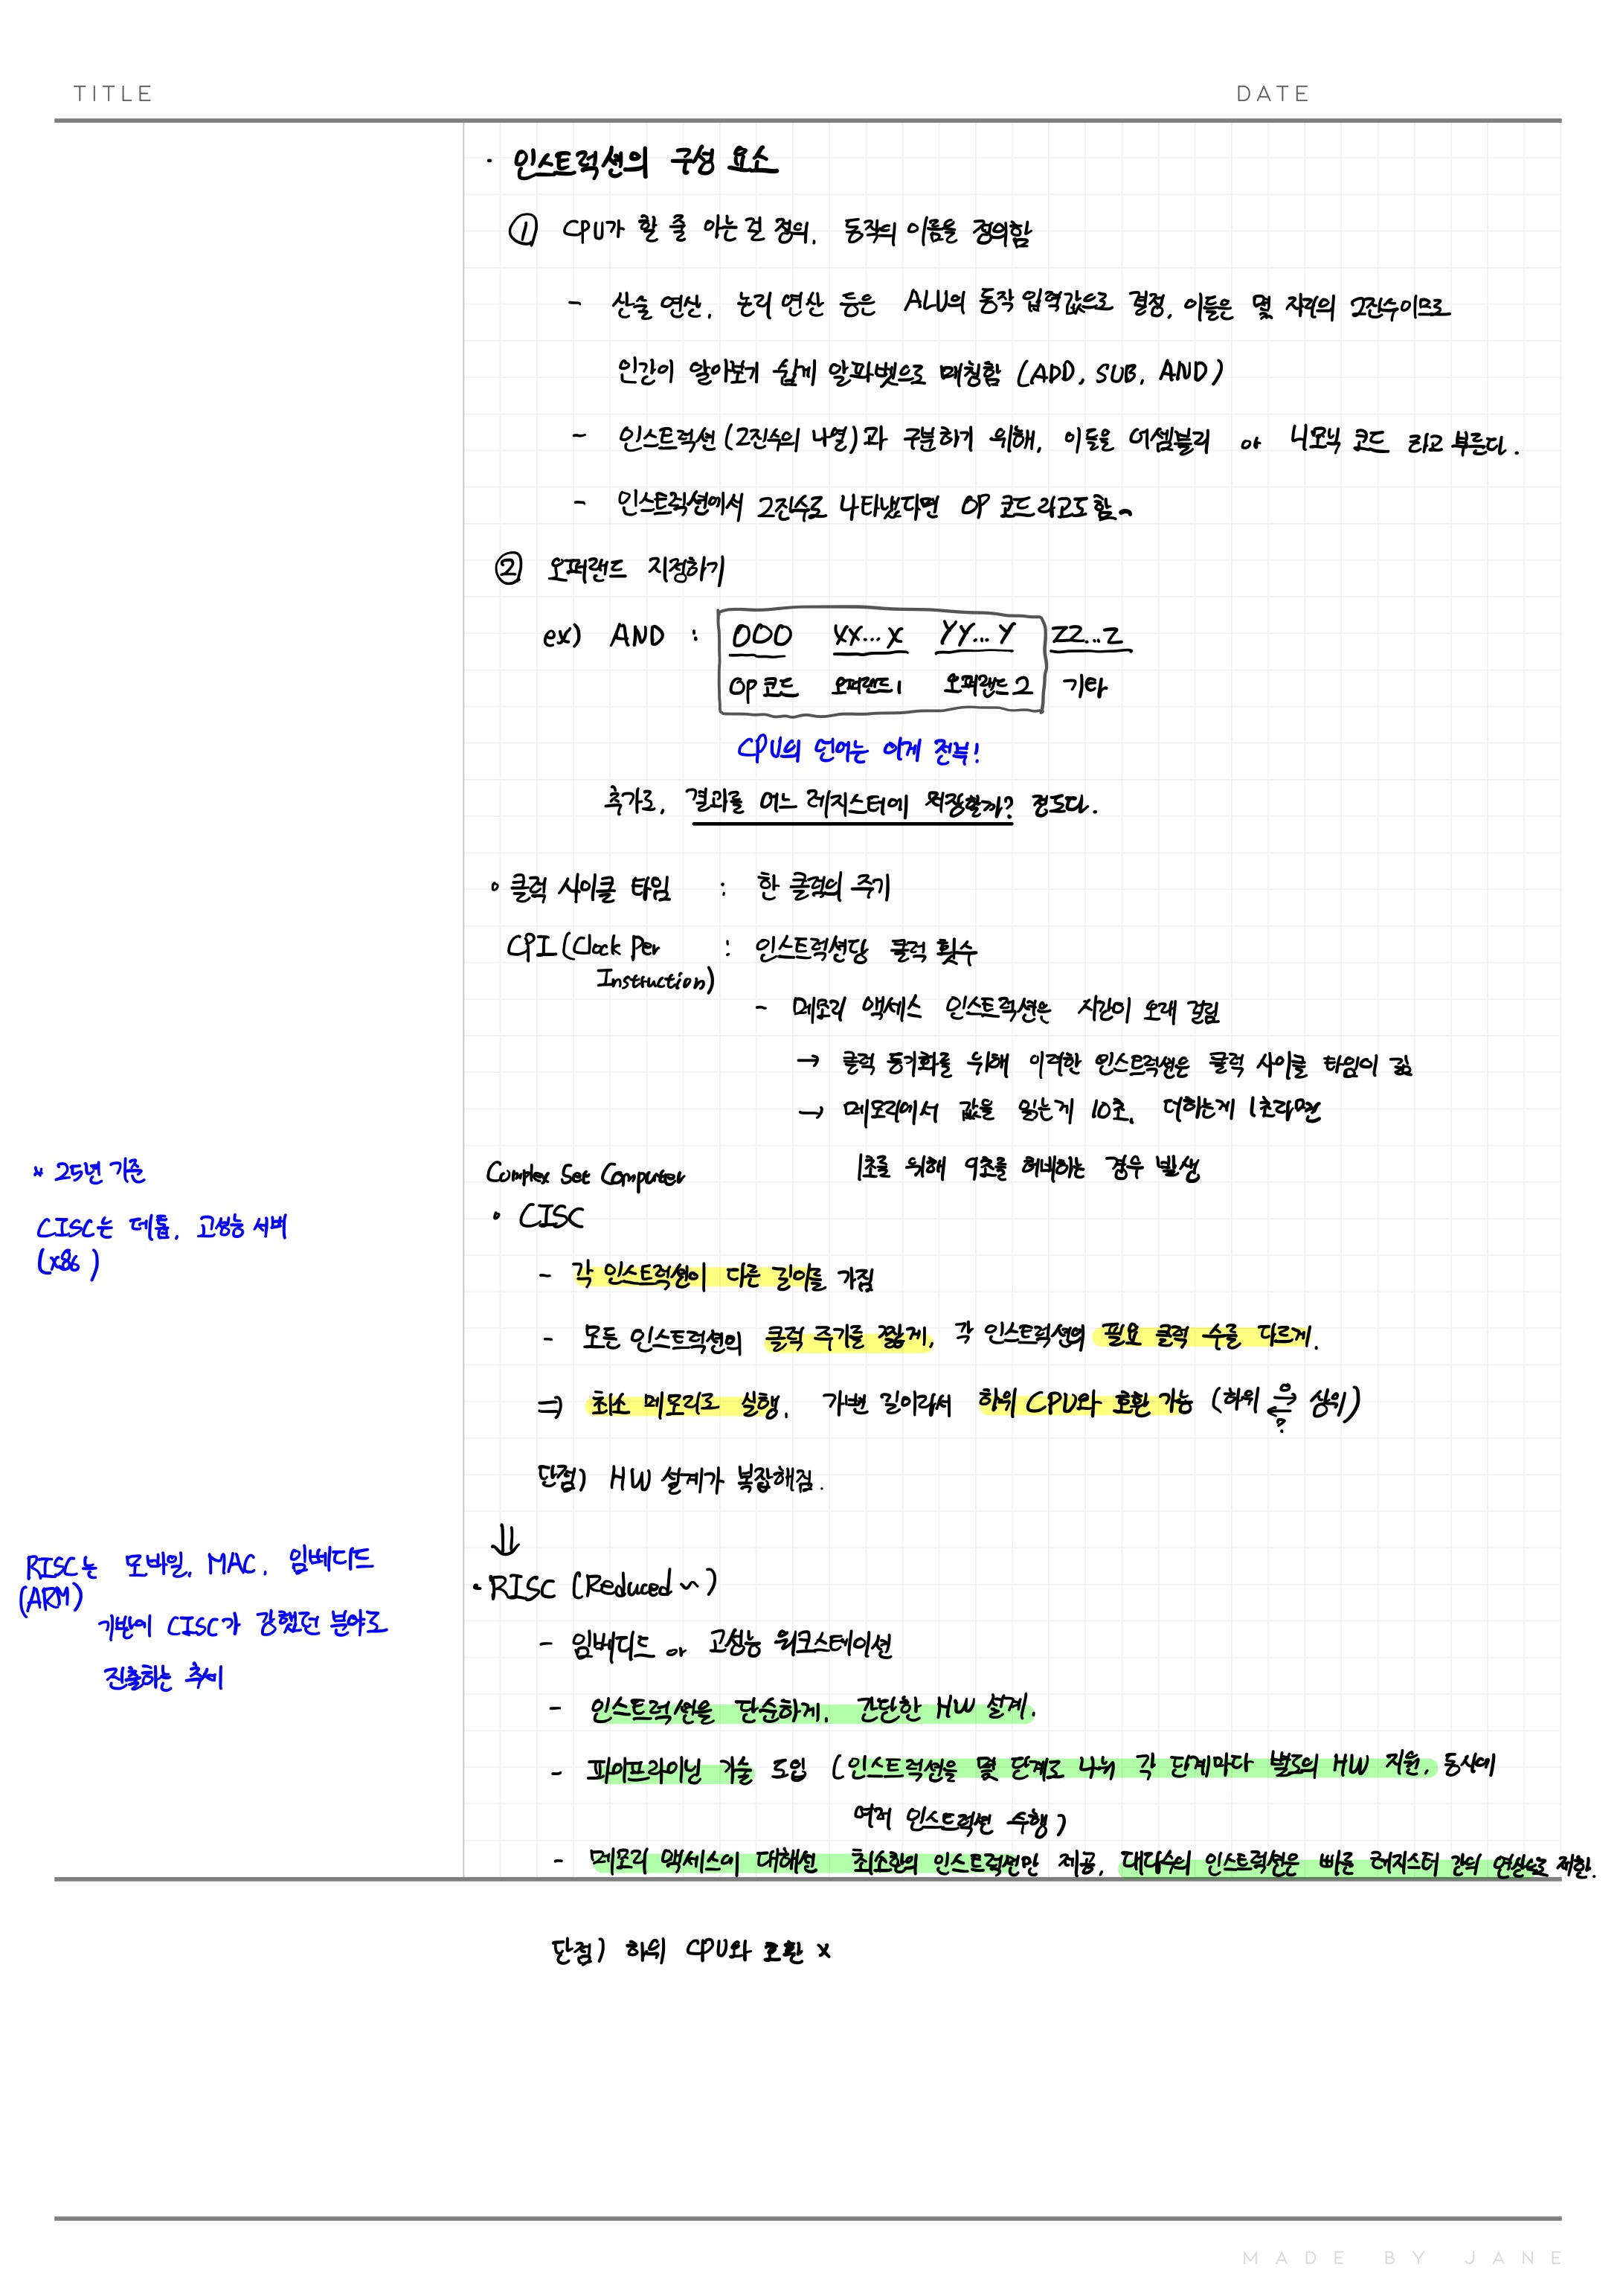 TITLE
DATE
· 인스트럭션의 구성 요소
① CPU가 할 줄 아는 걸 정의. 동작의 이름을 정의함
- 산술 연산, 논리 연산 등은 ALU의 동작 입력값으로 결정, 이들은 몇 자리의 2진수이므로
인간이 알아보기 쉽게 알파벳으로 매칭함 (ADD, SUB, AND)
- 인스트럭션 (2진수의 나열)과 구분하기 위해, 이들을 어셈블리 or 니모닉 코드 라고 부른다.
- 인스트럭션에서 2진수로 나타냈다면 OP 코드라고도 함~
② 오퍼랜드 지정하기
ex) AND : 000 XX...X YY...Y ZZ...Z
OP 코드 오퍼랜드1 오퍼랜드2 기타
CPU의 언어는 이게 전부!
추가로, 결과를 어느 레지스터에 저장할까? 정도다.
· 클럭 사이클 타임 : 한 클럭의 주기
CPI (Clock Per : 인스트럭션당 클럭 횟수
Instruction)
- 메모리 액세스 인스트럭션은 시간이 오래 걸림
→ 클럭 동기화를 위해 이러한 인스트럭션은 클럭 사이클 타임이 긺
→ 메모리에서 값을 읽는게 10초, 더하는게 1초라면
1초를 위해 9초를 허비하는 경우 발생
* 25년 기준
CISC는 데톱, 고성능 서버
(x86)
Complex Set Computer
· CISC
- 각 인스트럭션이 다른 길이를 가짐
- 모든 인스트럭션의 클럭 주기를 짧게, 각 인스트럭션의 필요 클럭 수를 다르게.
⇒ 최소 메모리로 실행, 가변 길이라서 하위 CPU와 호환 가능 (하위 ⇄ 상위)
?
단점) HW 설계가 복잡해짐.
⇓
RISC는 모바일, MAC, 임베디드
(ARM)
기반이 CISC가 강했던 분야로
진출하는 추세
· RISC (Reduced ~)
- 임베디드 or 고성능 워크스테이션
- 인스트럭션을 단순하게, 간단한 HW 설계.
- 파이프라이닝 기술 도입 (인스트럭션을 몇 단계로 나눠 각 단계마다 별도의 HW 지원, 동시에
여러 인스트럭션 수행)
- 메모리 액세스에 대해선 최소한의 인스트럭션만 제공, 대다수의 인스트럭션은 빠른 레지스터 간의 연산으로 제한.
단점) 하위 CPU와 호환 x
MADE BY JANE